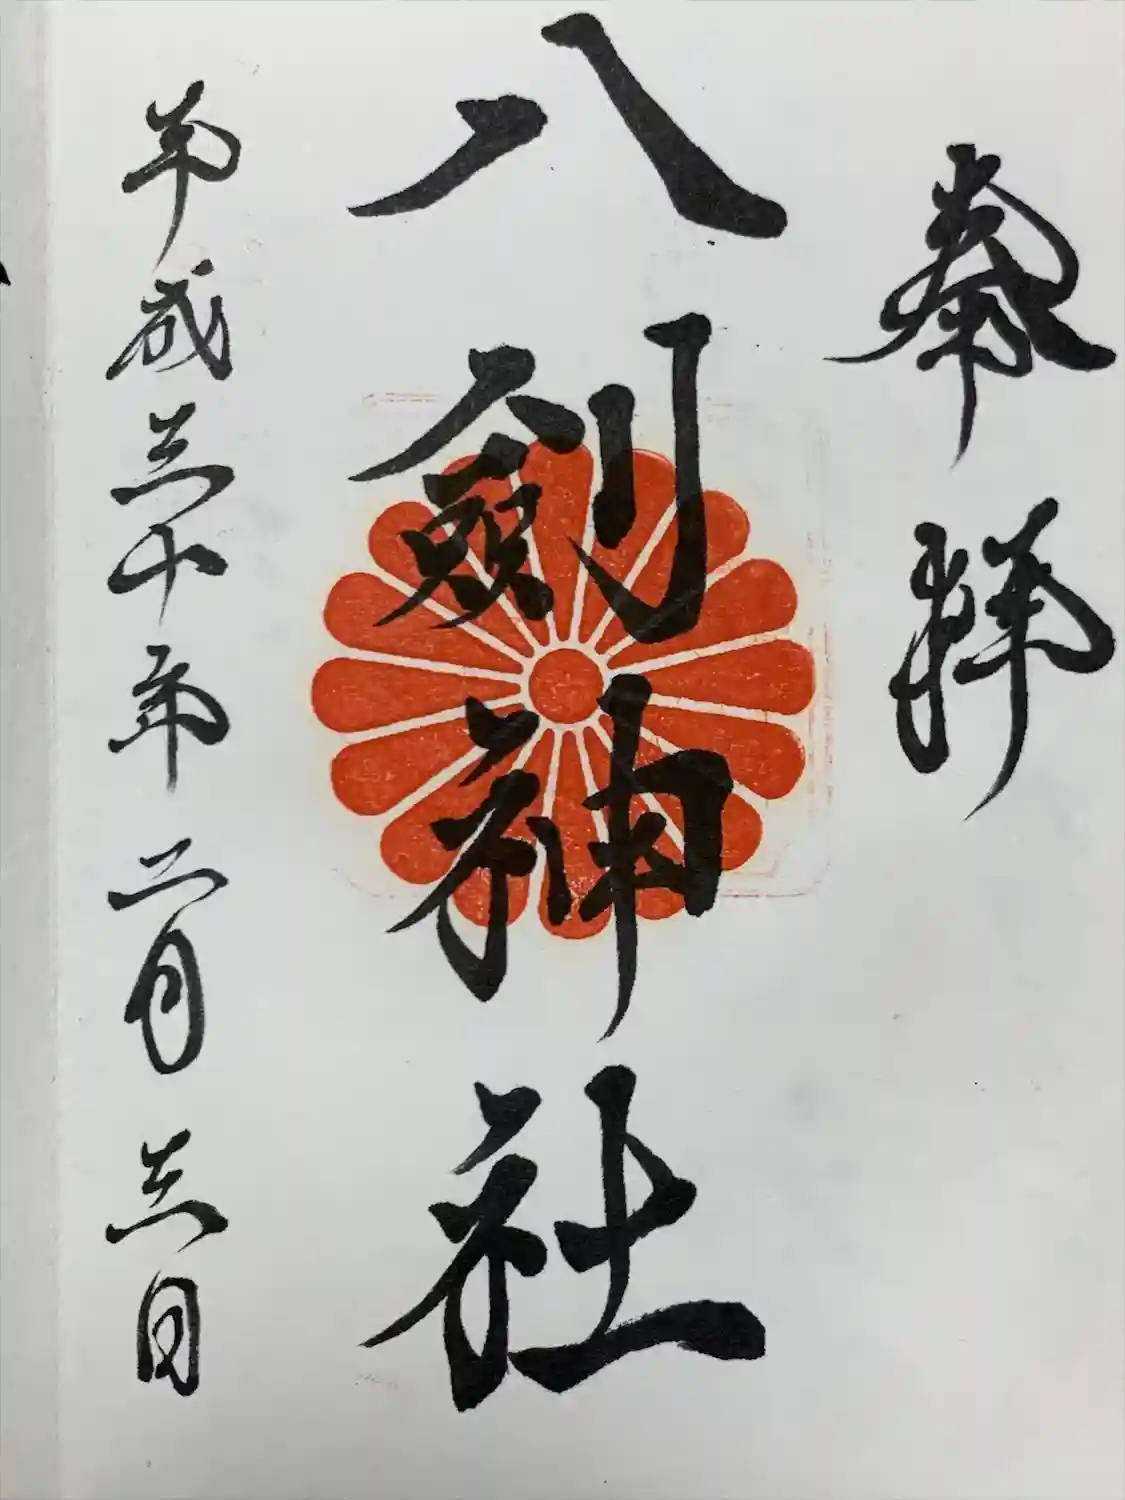 奉拝
八劔神社
平成三十年二月三日